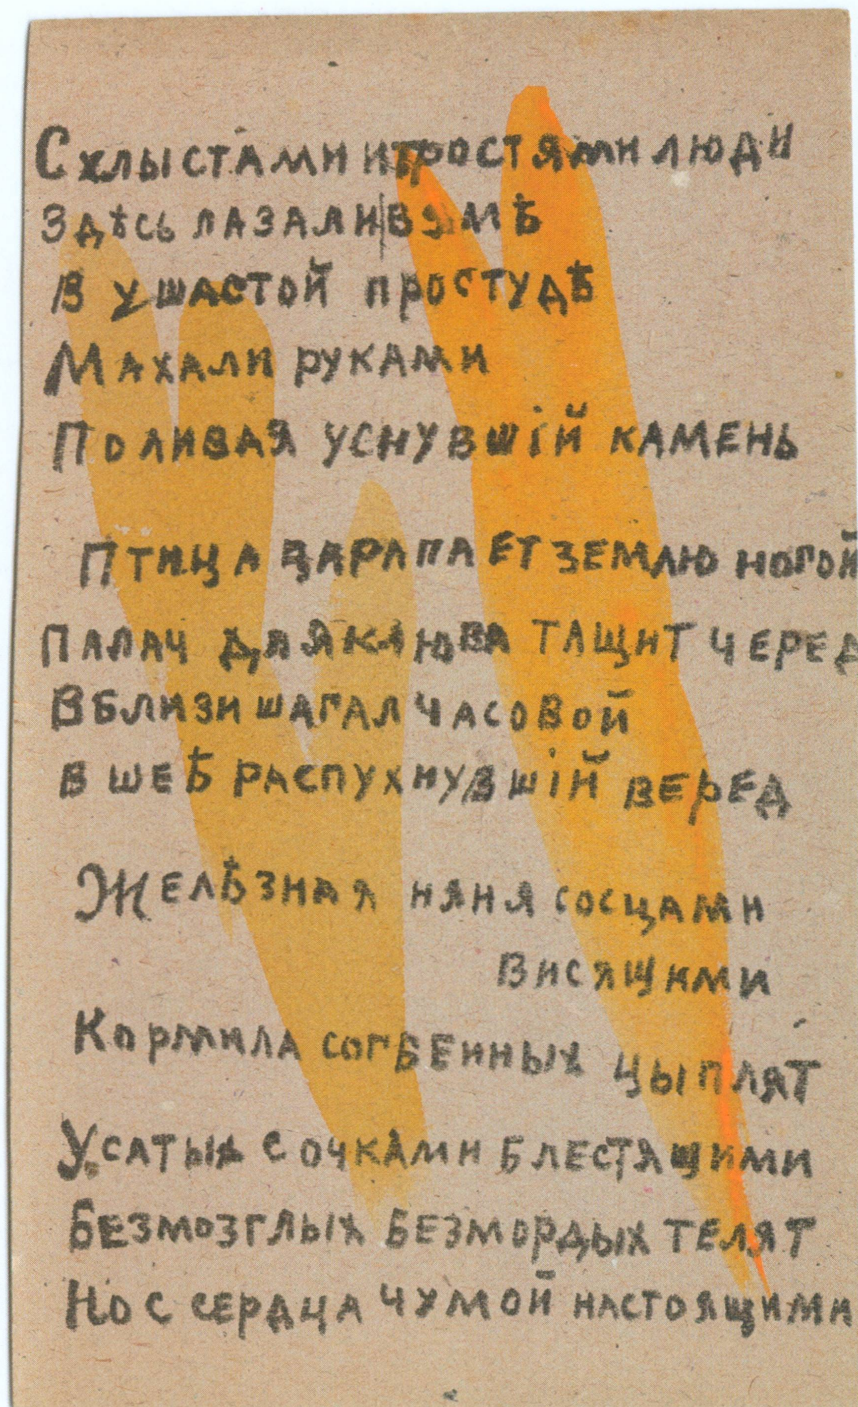 С хлыстами и тростями люди
Здѣсь лазали в умѣ
В ушастой простудѣ
Махали руками
Поливая уснувшій камень
Птица царапает землю ногой
Палач для каюва тащит черед
Вблизи шагал часовой
В шеѣ распухнувшій веред
Желѣзная няня сосцами
висящими
Кормила согбенных цыплят
Усатых с очками блестящими
Безмозглых безмордых телят
Но с сердца чумой настоящими